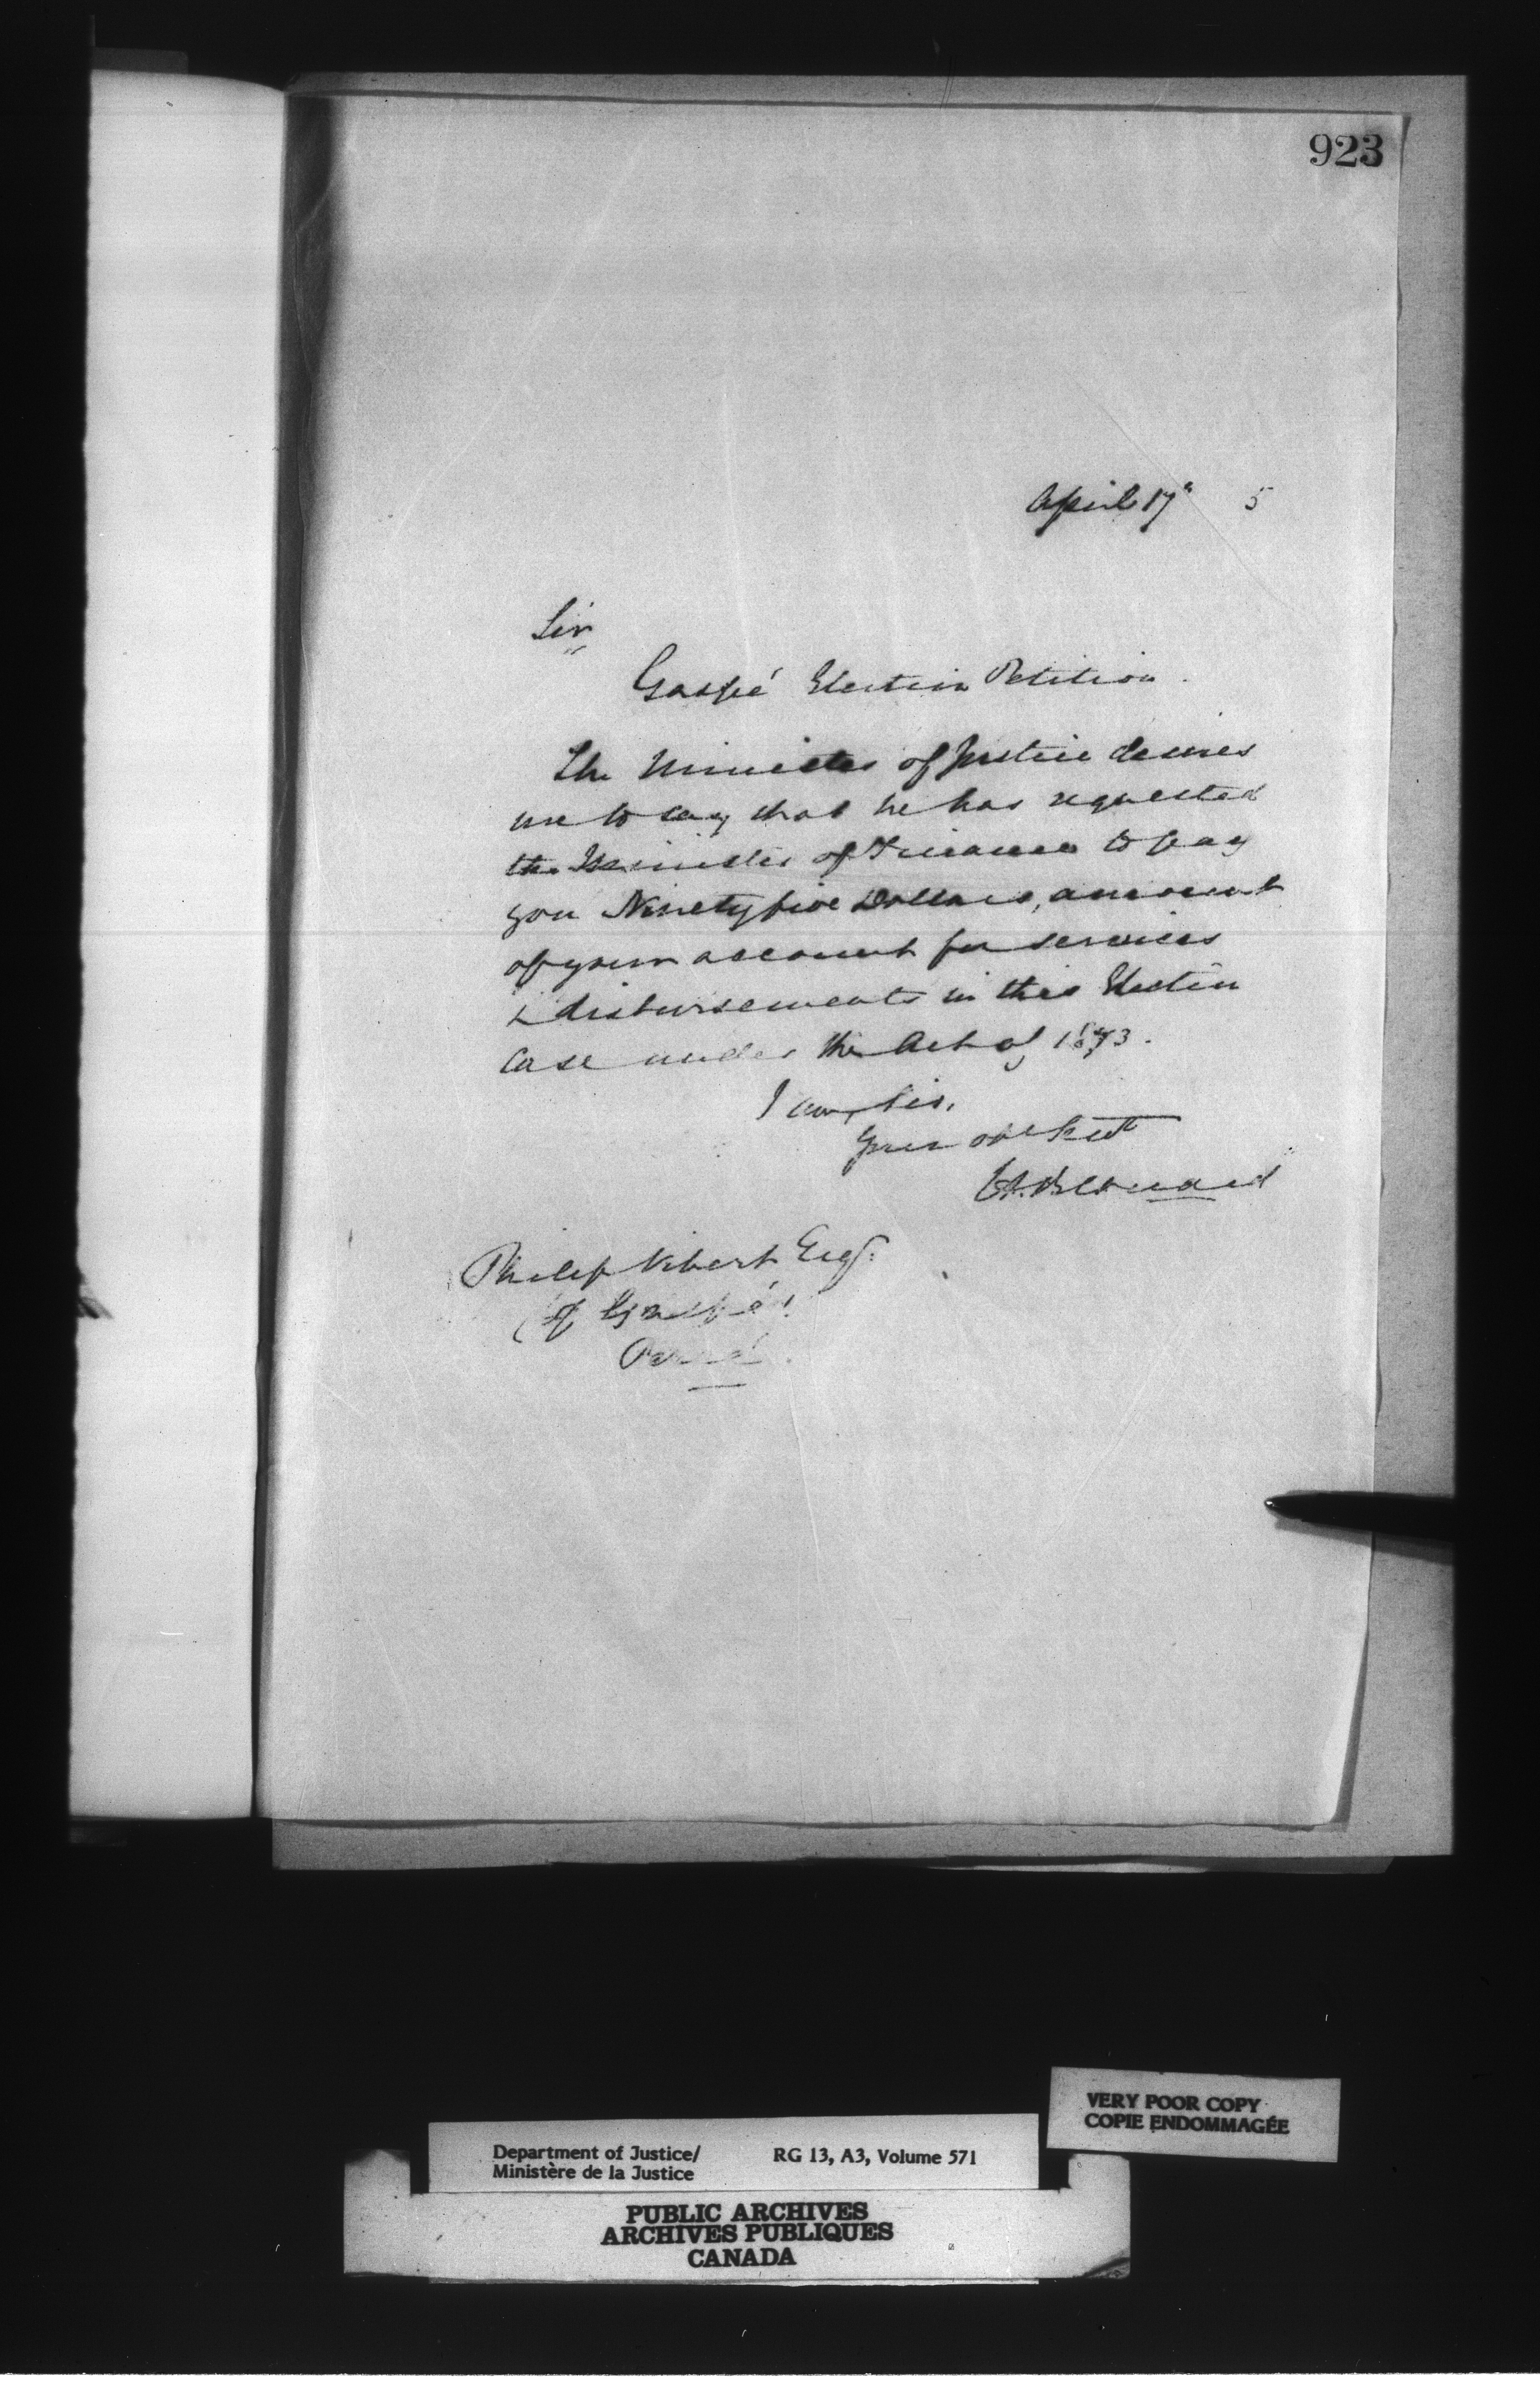 923
April 17" 5
Sir
Gaspé Election Petition.
The Minister of Justice desires
me to say that he has requested
the Minister of Finance to pay
you Ninety five Dollars, amount
of your account for services
& disbursements in this Election
Case under the Act of 1873.
I am, Sir,
Your obt Servt
Bernard
Philip Vibert Esqr.
(of Gaspé)
Percé.
VERY POOR COPY
COPIE ENDOMMAGÉE
Department of Justice/ RG 13, A3, Volume 571
Ministère de la Justice
PUBLIC ARCHIVES
ARCHIVES PUBLIQUES
CANADA